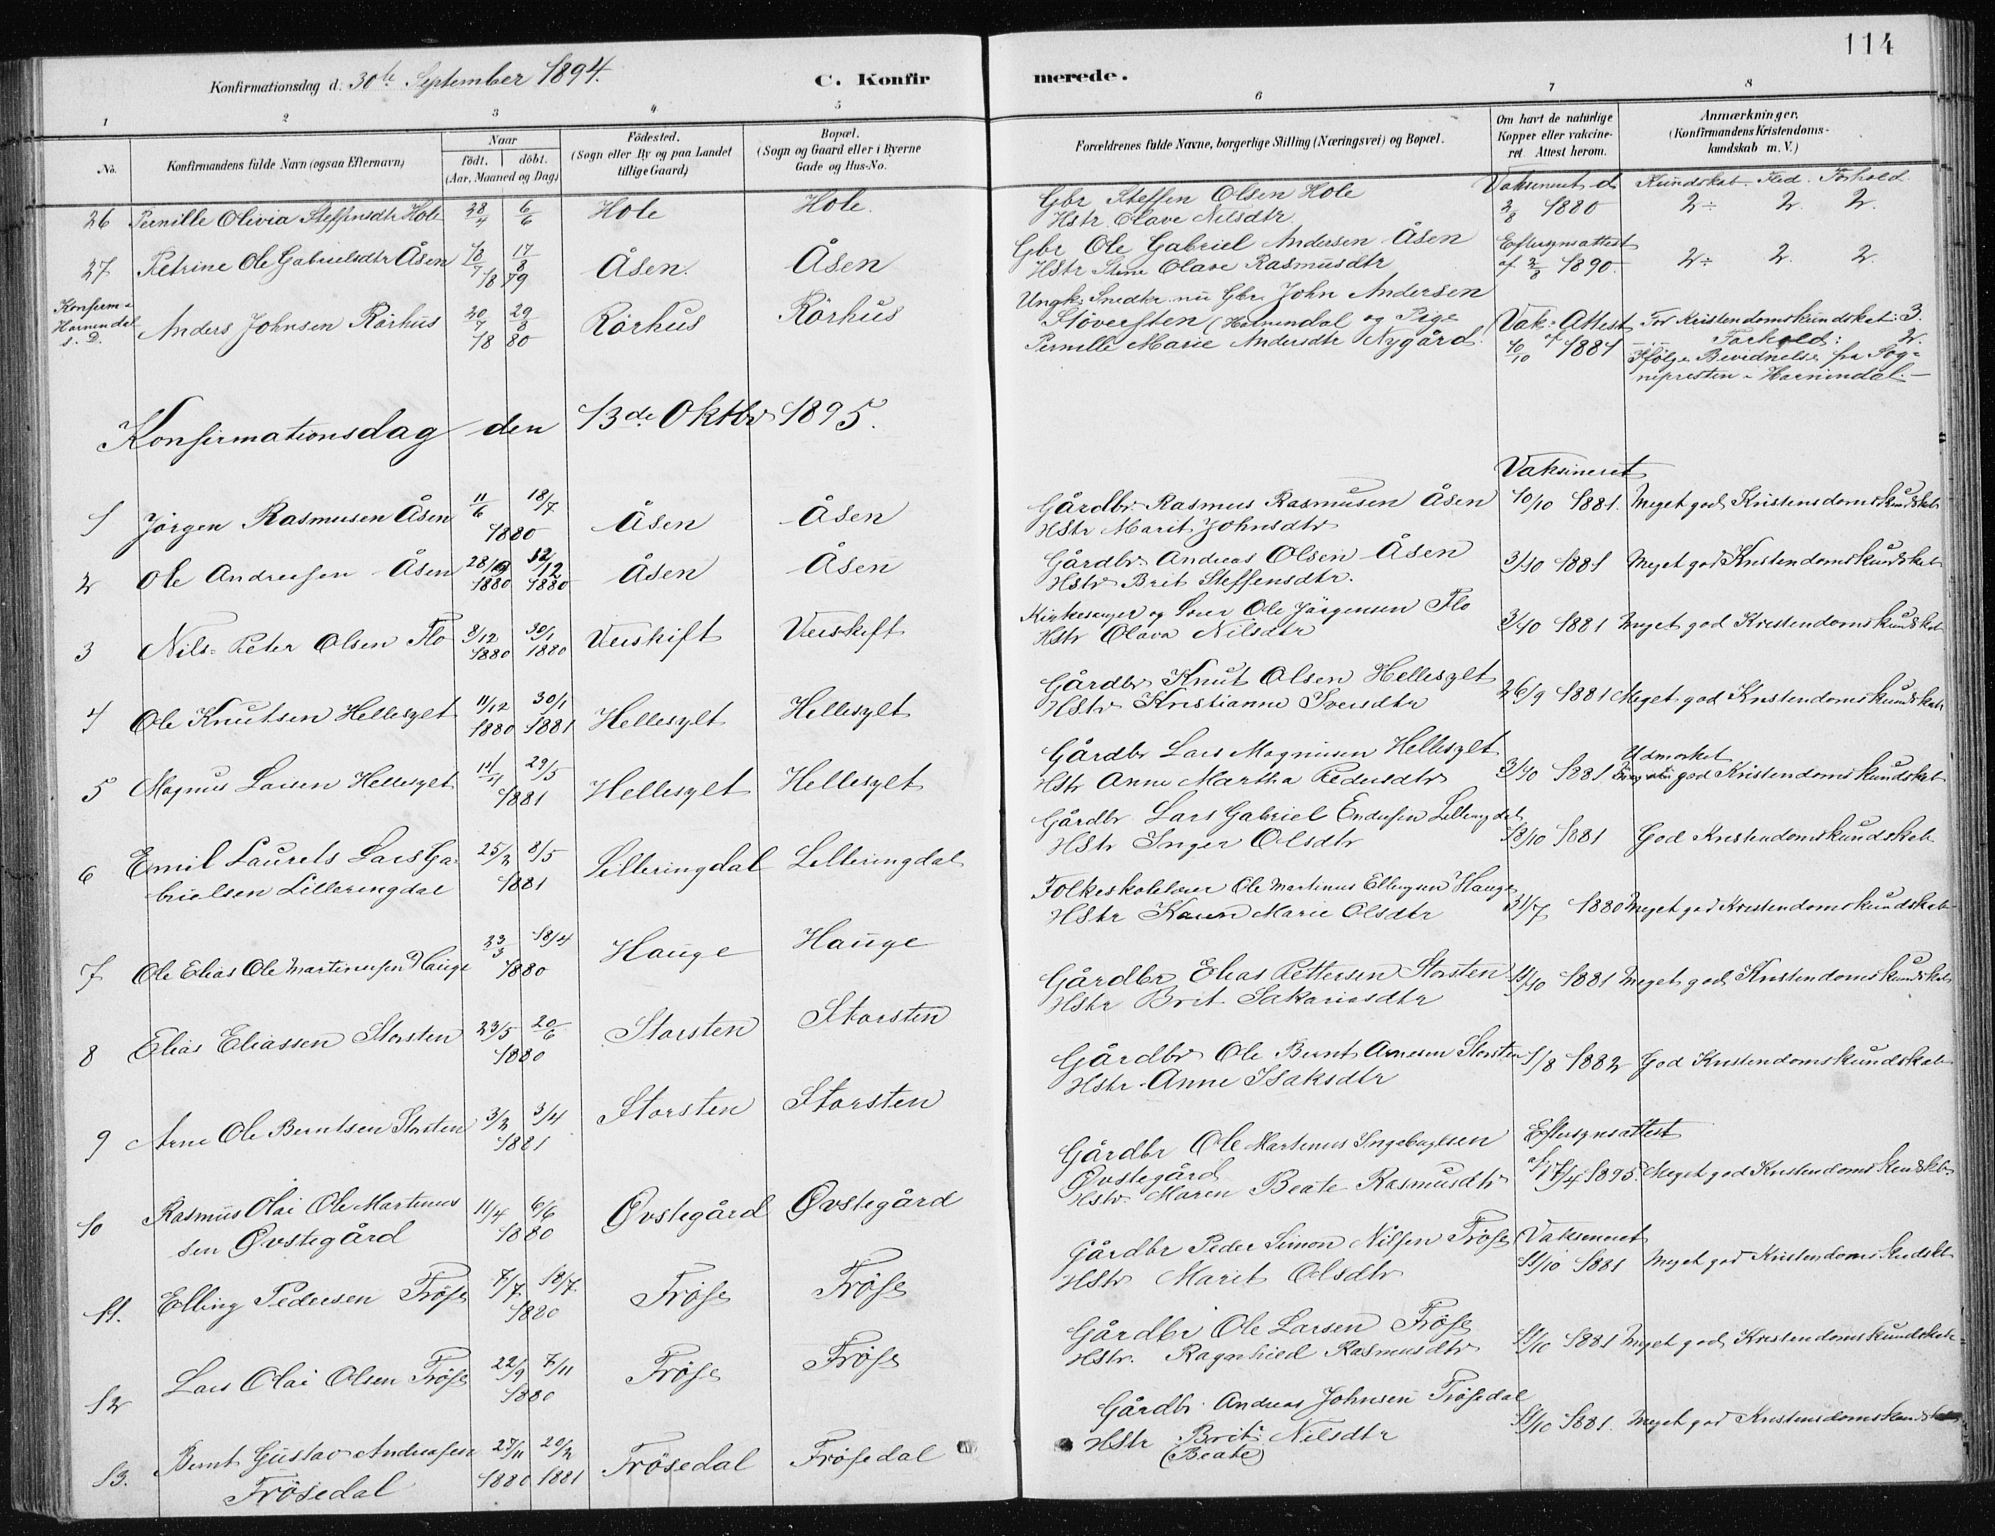 114
Konfirmationsdag d. 30te September 1894.
C. Konfirmerede.
1 2 3 4 5 6 7 8
No.
Konfirmandens fulde Navn (ogsaa Efternavn)
Naar
födt. döbt.
(Aar, Maaned og Dag)
Födested.
(Sogn eller By og paa Landet
tillige Gaard)
Bopæl.
(Sogn og Gaard eller i Byerne
Gade og Hus-No.
Forældrenes fulde Navne, borgerlige Stilling (Næringsvei) og Bopæl.
Om havt de naturlige
Kopper eller vakcine-
ret. Attest herom.
Anmærkninger.
(Konfirmandens Kristendoms-
kundskab m. V.)
Kundskab. Flid. Forhold
26 Pernille Olivia Steffensdtr Hole 28/4 6/6 Hole Hole. Gbr Steffen Olsen Hole Vaksineret d
Hstr Olave Nilsdtr 2/8 1880 2÷ 2. 2.
27 Petrine Ole Gabrielsdtr Åsen 10/7 17/8 1879 Åsen. Åsen Gbr Ole Gabriel Andersen Åsen Eftersynsattest
Hstr Stine Olave Rasmusdtr af 2/8 1890. 2÷ 2. 2.
Konfirm. i
Hornindal
s. D.
Anders Johnsen Rörhus 20/7 29/8 1880 Rörhus Rörhus Ungk: Snedker nu Gbr John Andersen
Støversten (Hornindal og Pige Vak. Attest For Kristendomskundskab: 3.
Pernille Marie Andersdtr Nygård. af 10/10 1881 —„— Forhold: 2.
Ifölge Bevidnelse fra Sog-
nepresten i Hornindal.—
Konfirmationsdag den 13de Oktbr 1895.
Vaksineret
1 Jörgen Rasmusen Åsen 11/6 18/7 1880 Åsen Åsen Gårdbr. Rasmus Rasmusen Åsen 10/10 1881. Meget god Kristendomskundskab
Hstr Marit Johnsdtr
2 Ole Andreasen Åsen 1880 1880 Åsen Åsen Gårdbr Andreas Olsen Åsen 3/10 1881 Meget god Kristendomskundskab
Hstr Brit Steffensdtr.
3 Nils Peter Olsen Flo 8/12 1880 30/1 1880 Veiskift Veiskift Kirkesanger og Lærer Ole Jörgensen Flo 3/10 1881 Meget god Kristendomskundskab
Hstr Olava Nilsdtr
4 Ole Knutsen Hellesylt 11/12 1880 30/1 1881 Hellesylt Hellesylt Gårdbr Knut Olsen Hellesylt 26/9 1881 Meget god Kristendomskundskab
Hstr Kristianne Iversdtr
5 Magnus Larsen Hellesylt 29/5 1881 Hellesylt Hellesylt Gårdbr Lars Magnusen Hellesylt Udmerket
Hstr Anne Martha Pedersdtr 3/10 1881 god Kristendomskundskab
6 Emil Laurets Lars Ga- 25/3 8/5 1881 Lilleringdal Lilleringdal Gårdbr Lars Gabriel Endresen Lilleringdal
brielsen Lilleringdal Hstr Inger Olsdtr 18/10 1881 God Kristendomskundskab
7 Ole Elias Ole Martinusen Hauge 23/3 18/4 1880 Hauge Hauge Folkeskolelærer Ole Martinus Ellingsen Hauge
Hstr Karen Marie Olsdtr 31/7 1880 Meget god Kristendomskundskab
8 Elias Eliassen Storsten 23/5 20/6 1880 Storsten Storsten Gårdbr Elias Pettersen Storsten 11/10 1881 Meget god Kristendomskundskab
Hstr Brit Sakariasdtr
9 Arne Ole Berntsen Storsten 3/2 3/4 1881 Storsten Storsten Gårdbr Ole Bernt Arnesen Storsten 1/8 1882 God Kristendomskundskab
Hstr. Anne Isaksdtr
10 Rasmus Olai Ole Martinus 11/4 6/6 1880 Øvstegård Øvstegård Gårdbr Ole Martinus Ingebrigtsen Eftersynsattest
sen Øvstegård Øvstegård af 17/4 1895. Meget god Kristendomskundskab
Hstr Maren Beate Rasmusdtr
11. Elling Pedersen Fröse 7/7 18/7 1880 Fröse Fröse Gårdbr Peder Simon Nilsen Fröse Vaksineret
Hstr Marit Olsdtr 11/10 1881 Meget god Kristendomskundskab
12 Lars Olai Olsen Fröse 22/9 7/11 1880 Fröse Fröse Gårdbr Ole Larsen Fröse 11/10 1881 Meget god Kristendomskundskab
Hstr. Ragnhild Rasmusdtr
13. Bernt Gustav Andreasen 27/11 1880 20/2 1881 Frösedal Frösedal Gårdbr. Andreas Johnsen Frösedal 11/10 1881. Meget god Kristendomskundskab
Frösedal Hstr Brit Nilsdtr
(Beate)